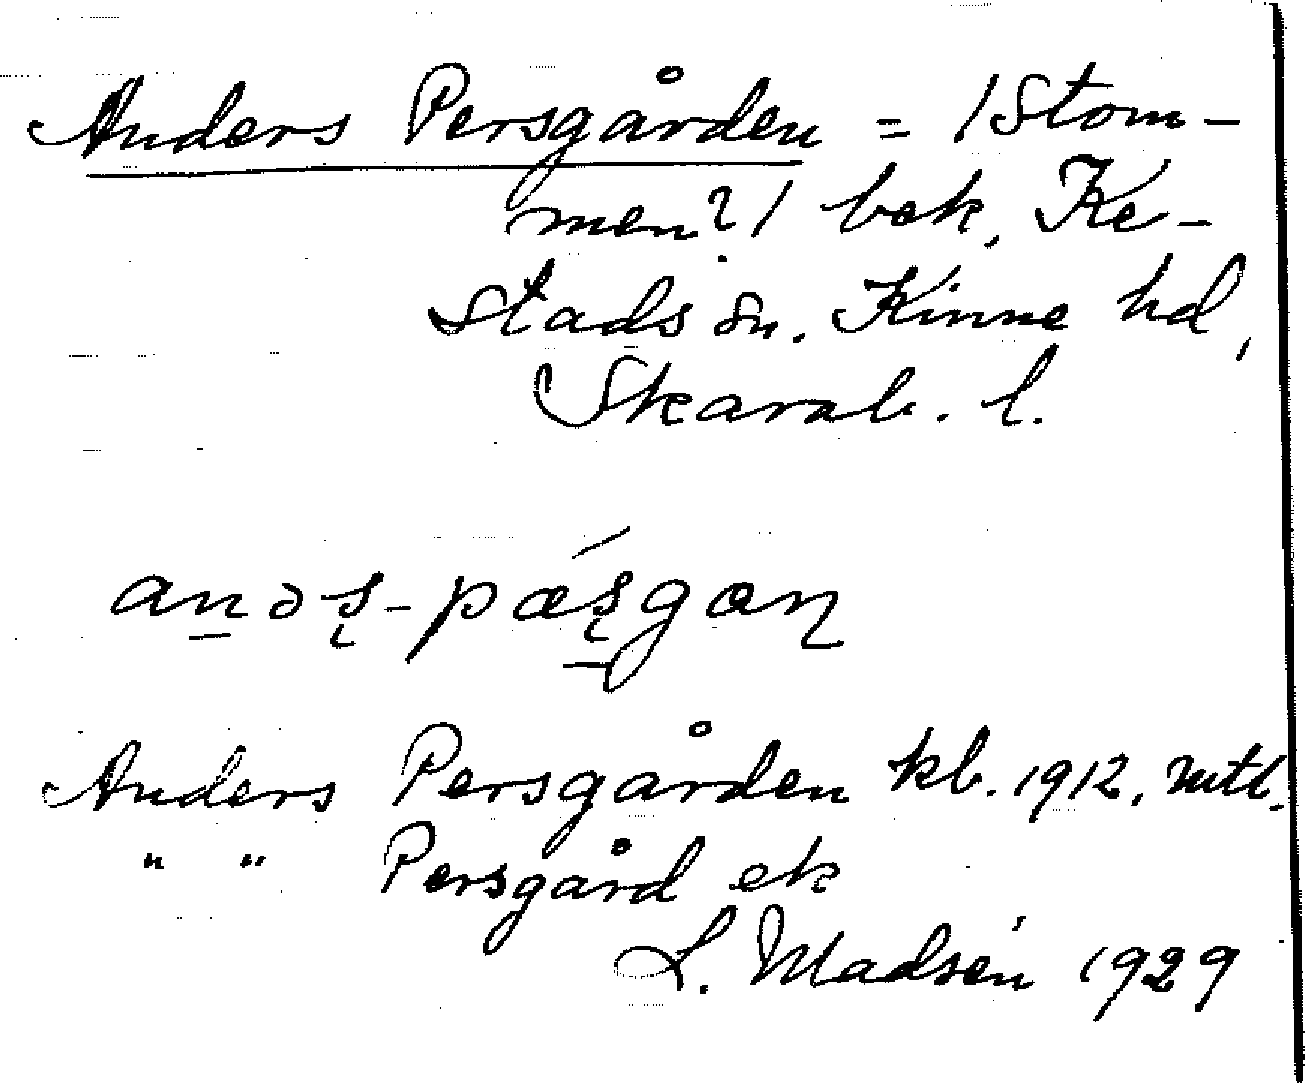 Anders Persgården = /Stom-
men?/ bek, Ke-
stads sn. Kinne hd,
Skarab. l.
anəʂ-pæ´ʂgɑɳ
Anders Persgården kb. 1912, mtl.
" " Persgård ek
L. Madsén 1929